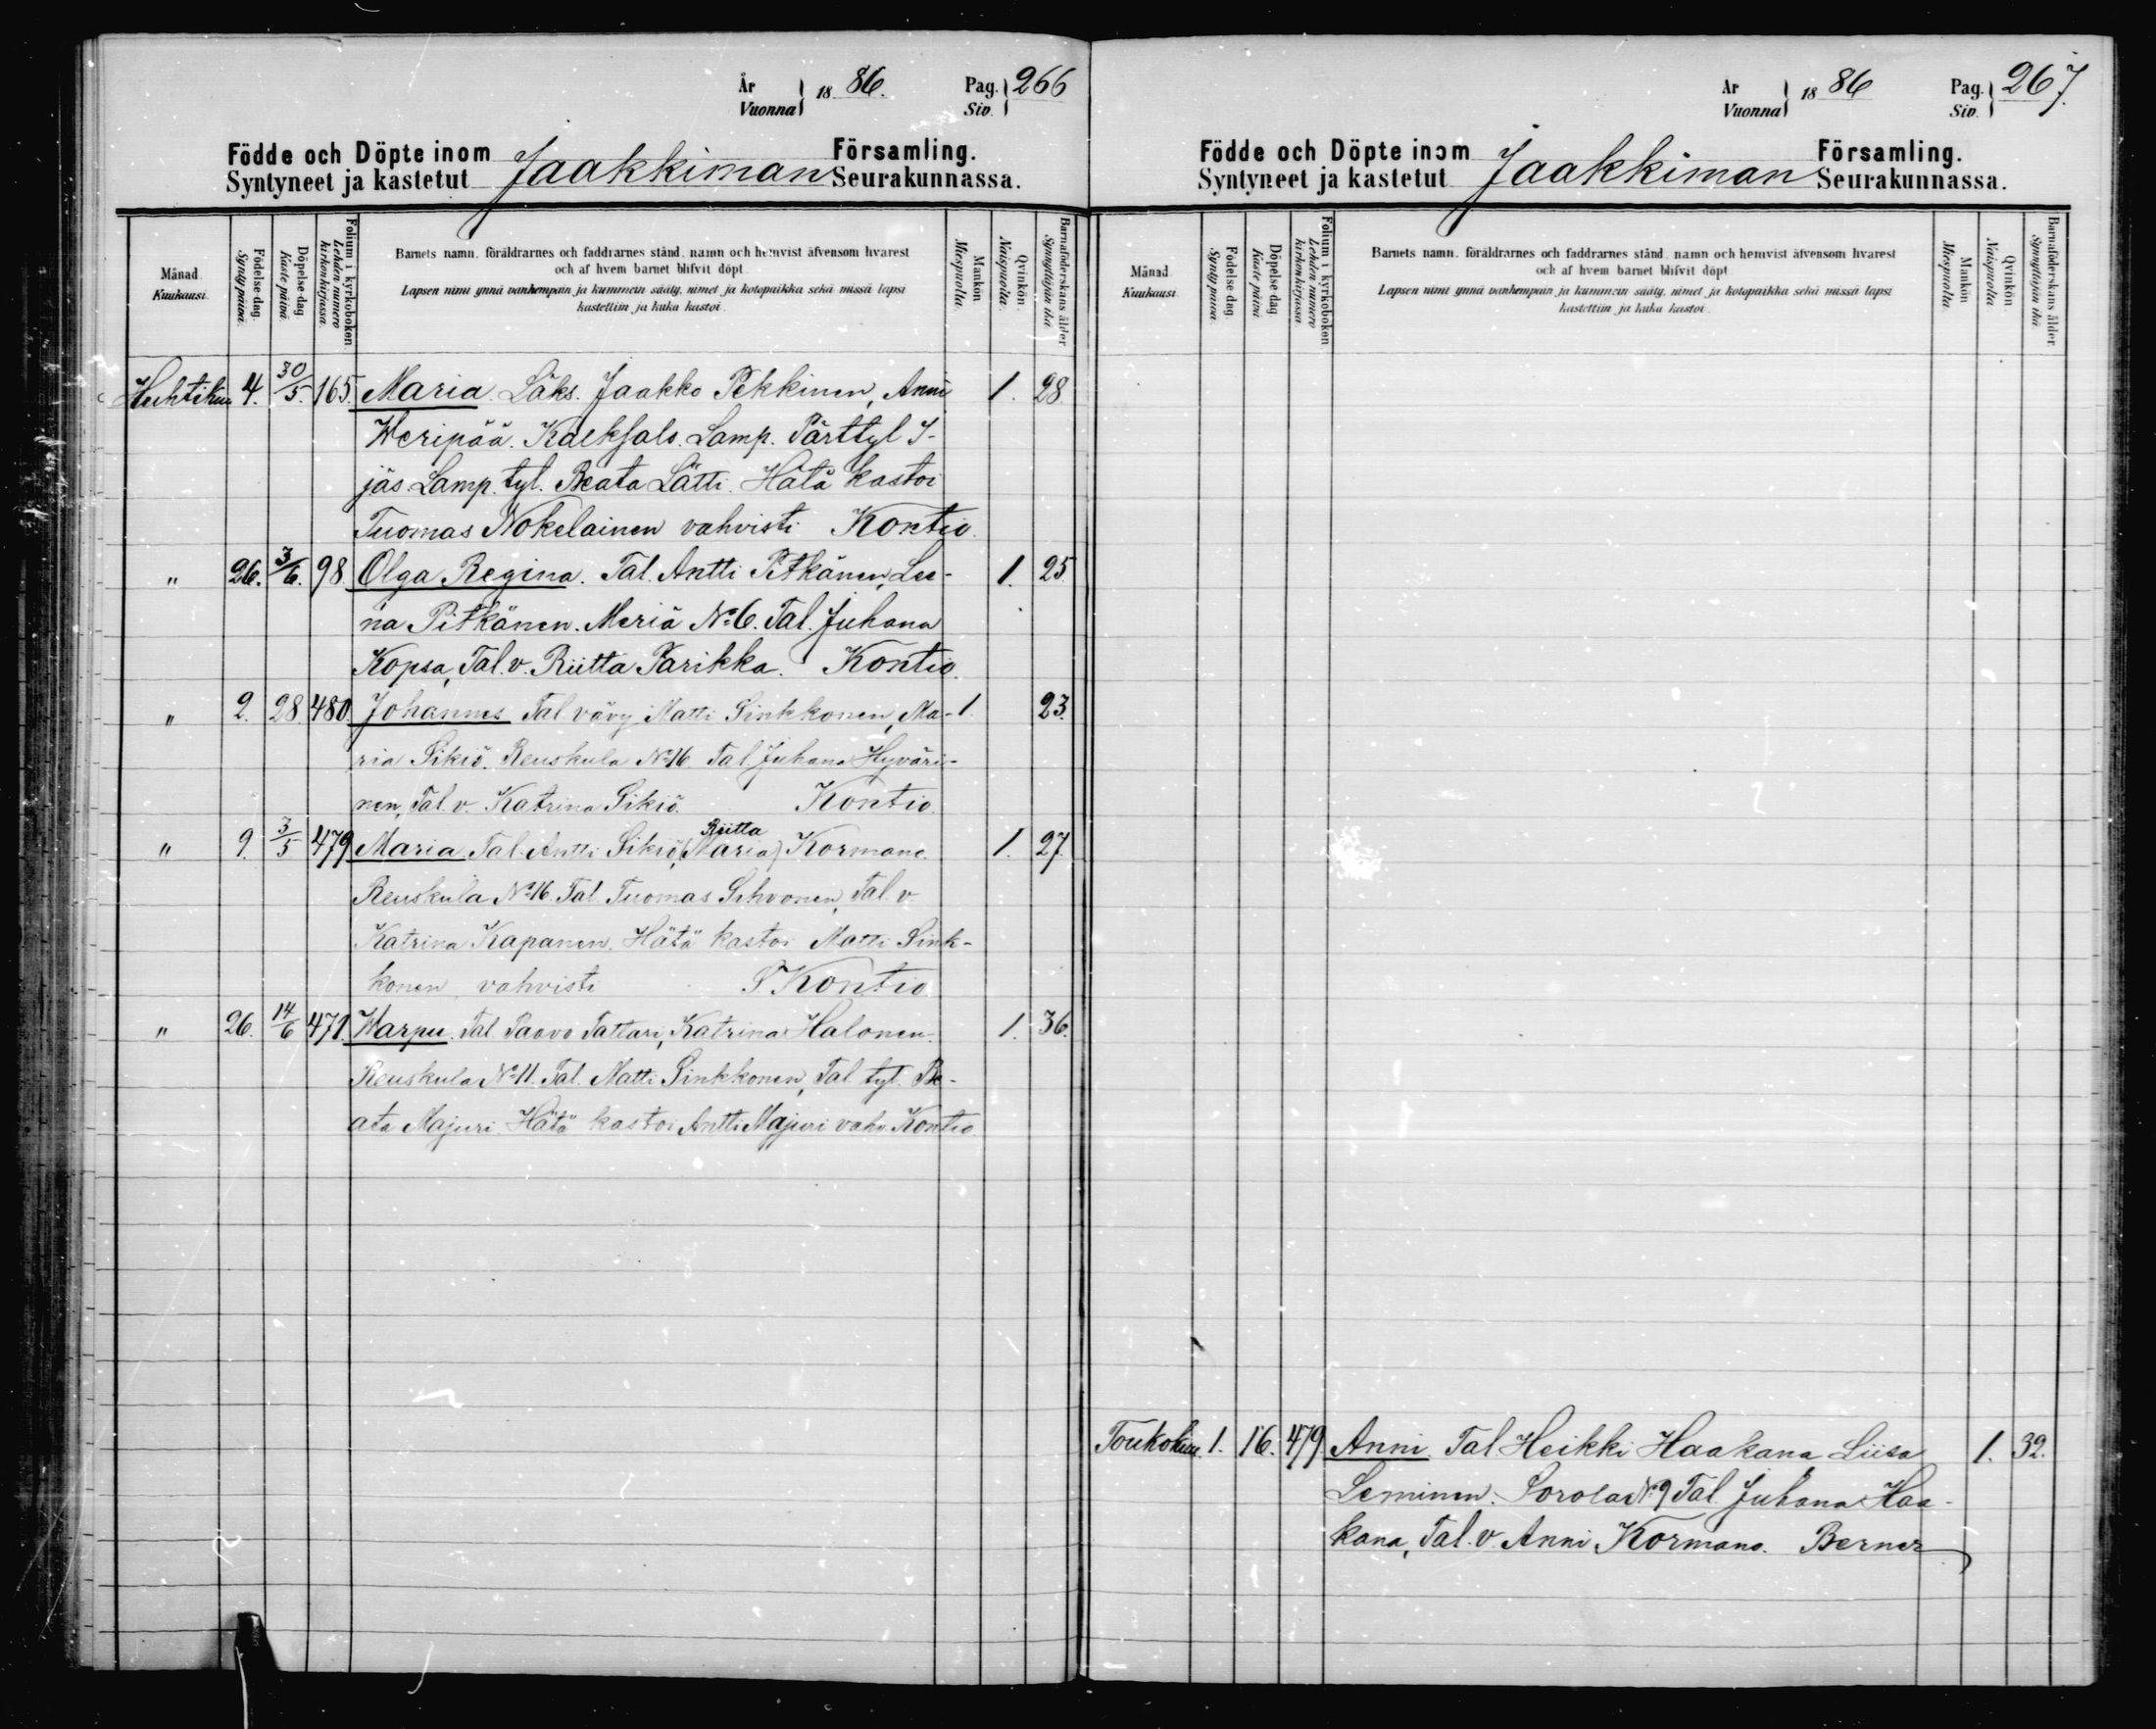 År
Vuonna } 18 86. Pag. Siv. } 266
Födde och Döpte inom Jaakkiman Församling.
Syntyneet ja kastetut Seurakunnassa.
Månad. Kuukausi.
Födelse dag. Synty päivä.
Döpelse dag. Kaste päivä.
Folium i kyrkoboken. Lehden numero kirkonkirjassa.
Barnets namn, föräldrarnes och faddrarnes stånd, namn och hemvist äfvensom hvarest
och af hvem barnet blifvit döpt.
Lapsen nimi ynnä vanhempain ja kummein sääty, nimet ja kotopaikka sekä missä lapsi
kastettiin ja kuka kastoi.
Mankön. Miespuolta.
Qvinkön. Naispuolta.
Barnaföderskans ålder. Synnyttäjän ikä.
Huhtikuu 4. 30/5. 165. Maria. Läks. Jaakko Pekkinen, Anni 1. 28
Weripää. Lamp. Pärttyl I-
jäs Lamp. tyt. Beata Lätti. Hätä kastoi
Tuomas Nokelainen vahvisti Kontio.
" 26. 3/6. 98. Olga Regina. Tal. Antti Pitkänen, Lee- 1. 25.
na Pitkänen. Meriä No 6. Tal. Juhana
Kopsa, Tal. v. Riitta Parikka. Kontio.
" 2. 28 480. Johannes Tal. vävy Matti Sinkkonen, Ma- 1. 23.
ria Sikiö. Reuskula No 16. Tal. Juhana Hyväri-
nen, Tal. v. Katrina Sikiö. Kontio.
" 9. 3/5 479 Maria. Tal. Antti Sikiö, (Maria) Riitta Kormano. 1. 27.
Reuskula No 16. Tal. Tuomas Sihvonen, Tal. v.
Katrina Kapanen. Hätä kastoi Matti Sink-
konen vahvisti Kontio.
" 26. 14/6 471. Warpu. Tal. Paavo Tattari, Katrina Halonen. 1. 36.
Reuskula No 11. Tal. Matti Sinkkonen, Tal. tyt. Be-
ata Majuri. Hätä kastoi Antti Majuri vahv. Kontio
År
Vuonna } 18 86 Pag. Siv. } 267.
Födde och Döpte inom Jaakkiman Församling.
Syntyneet ja kastetut Seurakunnassa.
Månad. Kuukausi.
Födelse dag. Synty päivä.
Döpelse dag. Kaste päivä.
Folium i kyrkoboken. Lehden numero kirkonkirjassa.
Barnets namn, föräldrarnes och faddrarnes stånd, namn och hemvist äfvensom hvarest
och af hvem barnet blifvit döpt.
Lapsen nimi ynnä vanhempain ja kummein sääty, nimet ja kotopaikka sekä missä lapsi
kastettiin ja kuka kastoi.
Mankön. Miespuolta.
Qvinkön. Naispuolta.
Barnaföderskans ålder. Synnyttäjän ikä.
Toukokuu 1. 16. 479 Anni. Tal. Heikki Haakana Liisa 1. 32.
Leminen. Sorola No 9 Tal. Juhana Haa-
kana, Tal. v. Anni Kormano. Berner